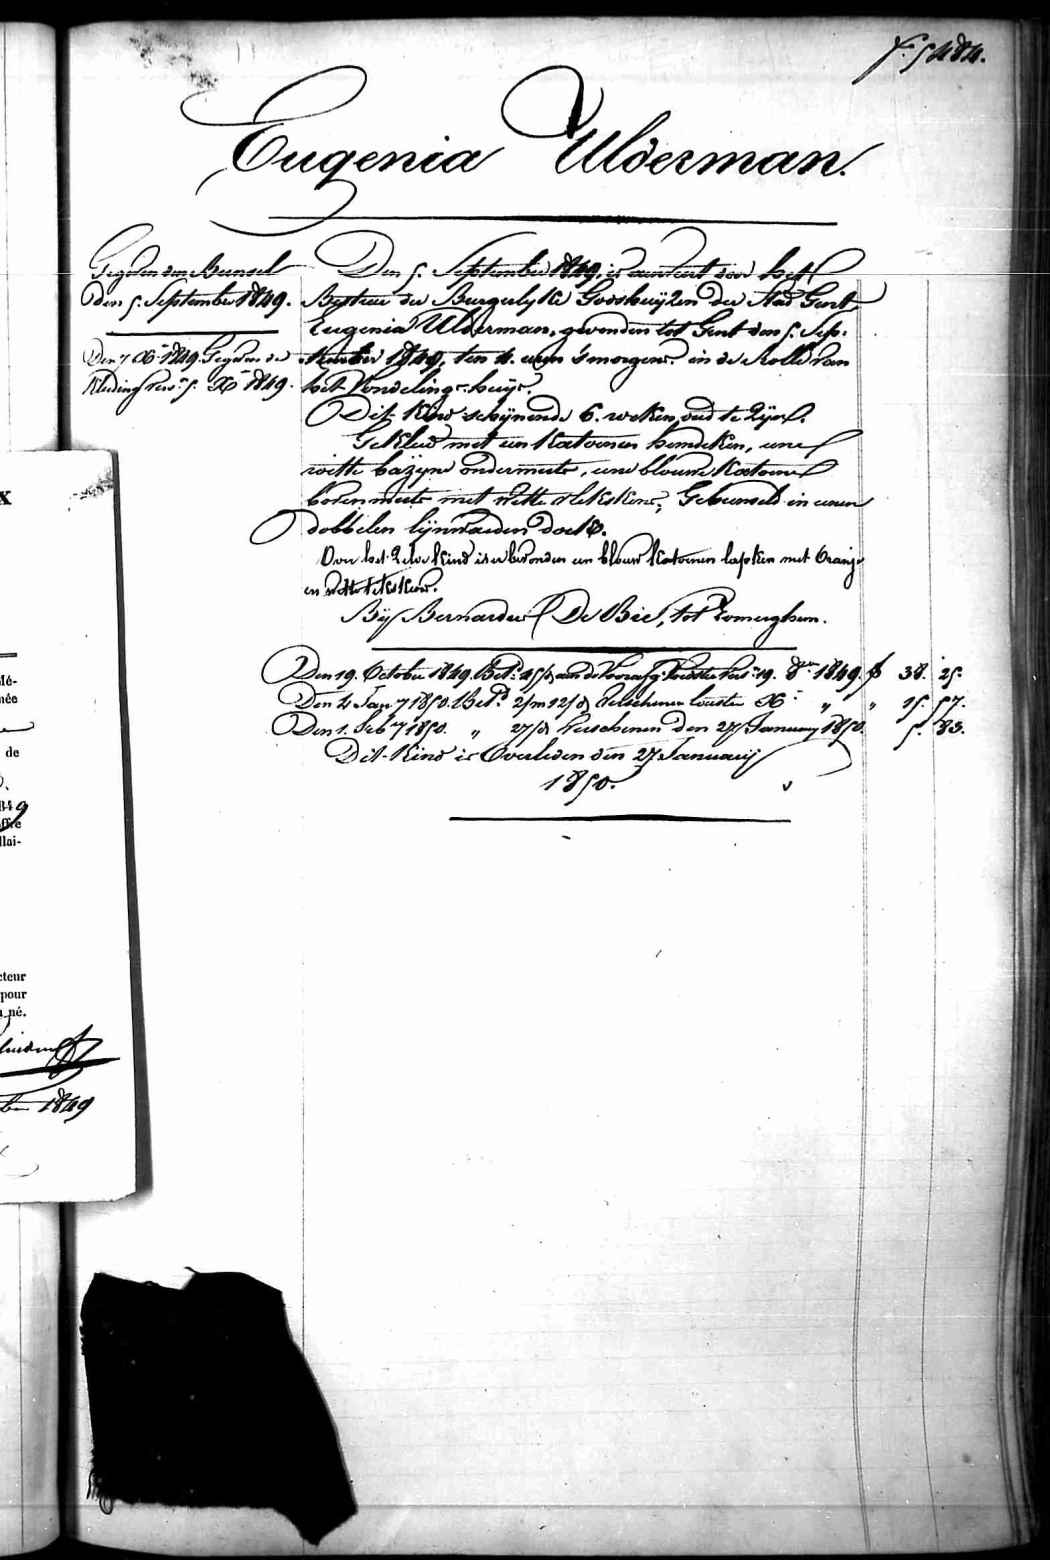 f. 5484.
Eugenia Ulderman.
Gegeven den Bunsel
den 5. September 1849.
Den 7 Xb. 1849. Gegeven de
Kleeding vers. 5. Xb 1849.
Den 5. September 1849, is aenveert door het
Bestier der Burgerlyke Godshuyzen der Stad Gent
Eugenia Ulderman, gevonden tot Gent den 5. Sep-
tember 1849, ten 4. uren 's morgens. in de Rolle van
het Vondelings-huys.
Dit Kind schynende 6. weken oud te zyn.
Gekleed met een Katoenen hemdeken, eene
witte bazyne ondermuts, eene blouwe Katoene
bovenmuts met witte vlekskens, Gebunseld in eenen
dobbelen lynwaeden doek.
Over het zelve Kind is er bevonden een blouw Katoenen lapken met Oranje
en witte vlekskens.
By Bernardus De Bie, tot Zomerghem.
Den 19. October 1849. Bet. aan de voorsz. 19. 8ber 1849. f 38. 25.
Den 4 Jany 1850. Bet. 2/m 12/d Xb " " 15. 57.
Den 1. Feby 1850. " 27/d Verschenen den 27 January 1850. 5. 83.
Dit Kind is Overleden den 27 January
1850.
X
lé-
née
de
1849
ffre
llai-
cteur
pour
né.
1849